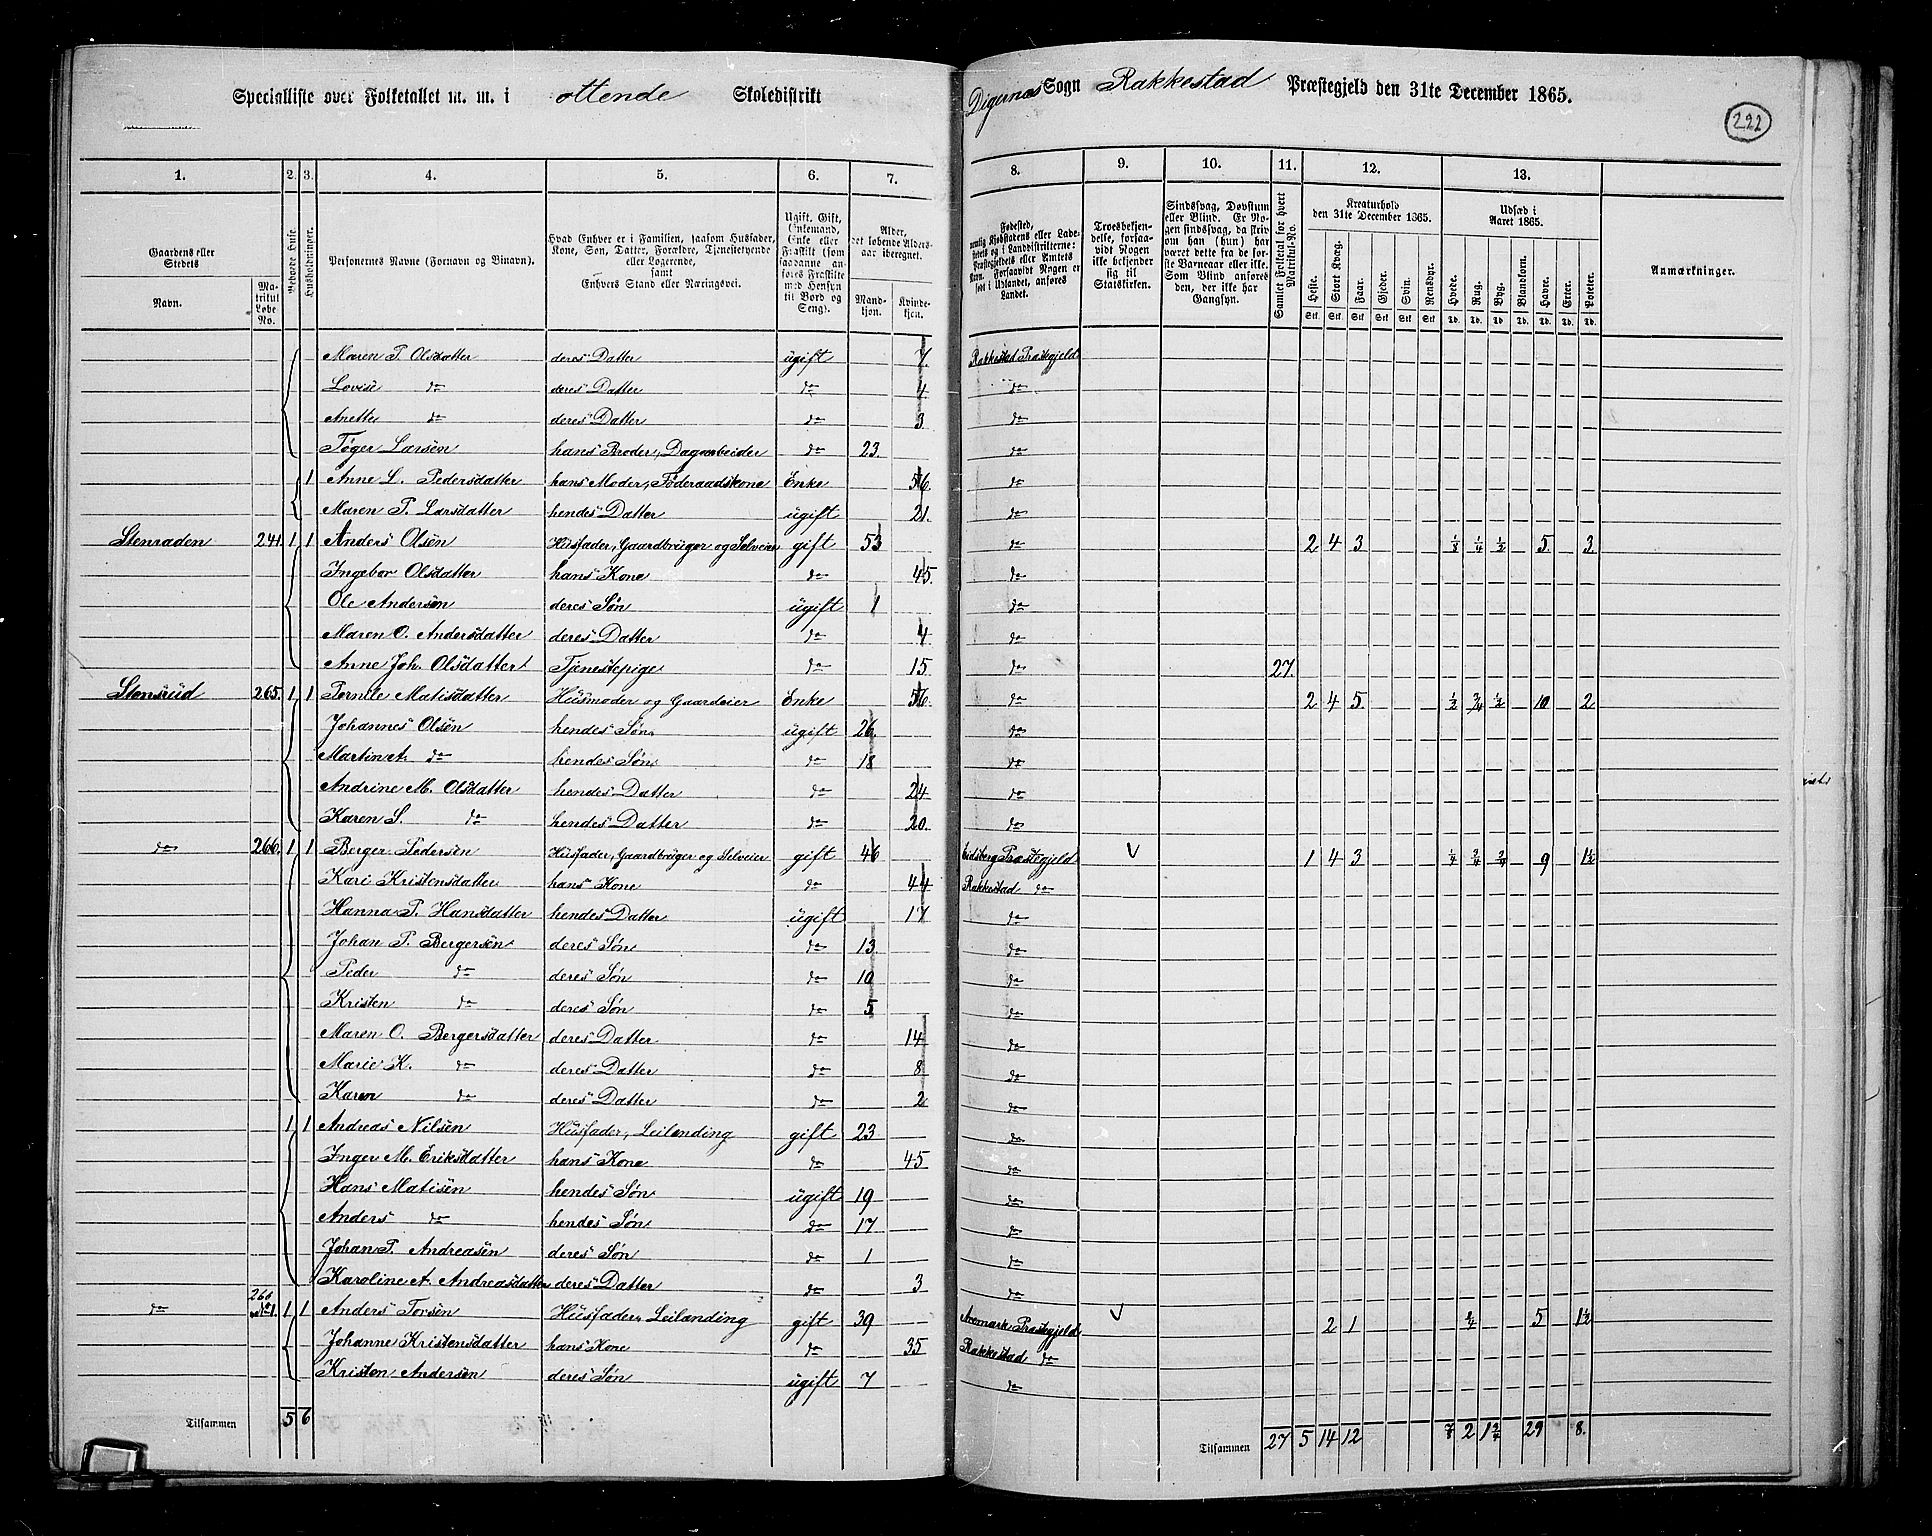 Specialliste over Folketallet m. m. i ottende Skoledistrikt Digernes Sogn Rakkestad Præstegjeld den 31te December 1865.
222
1. 2. 3. 4. 5. 6. 7. 8. 9. 10. 11. 12. 13.
Gaardens eller Stedets
Navn.
Matrikul Løbe No.
Beboede Huse.
Husholdninger.
Personernes Navne (Fornavn og Binavn).
Hvad Enhver er i Familien, saasom Husfader, Kone, Søn, Datter, Forældre, Tjenestetyende eller Logerende, samt Enhvers Stand eller Næringsvei.
Ugift, Gift, Enkemand, Enke eller Fraskilt (som saadanne anføres Fraskilte med Hensyn til Bord og Seng).
Alder, det løbende Aldersaar iberegnet.
Mandkjøn. Kvindekjøn.
Fødested, nemlig Kjøbstadens eller Ladestedets og i Landdistrikterne: Præstegjeldets eller Amtets Navn. Forsaavidt Nogen er født i Udlandet, anføres Landet.
Troesbekjendelse, forsaavidt Nogen ikke bekjender sig til Statskirken.
Sindssvag, Døvstum eller Blind. Er Nogen sindssvag, da skriv om han (hun) har været dette fra de første Barneaar eller ikke. Som Blind anføres den, der ikke har Gangsyn.
Samlet Folketal for hvert Matrikul-No.
Kreaturhold den 31te December 1865.
Heste. Stort Kvæg. Faar. Gjeder. Svin. Rensdyr.
Udsæd i Aaret 1865.
Hvede. Rug. Byg. Blandkorn. Havre. Erter. Poteter.
Anmærkninger.
Maren P. Olsdatter deres Datter ugift 7. Rakkestad Præstegjeld
Lovise do deres Datter do 4. do
Anette do deres Datter do 3. do
Tøger Larsen hans Broder, Dagarbeider do 23. do
1 Anne L. Pedersdatter hans Moder, Føderaadskone Enke 56. do
Maren P. Larsdatter hendes Datter ugift 21. do
Stenraden 241. 1 1 Anders Olsen Husfader, Gaardbruger og Selveier gift 53 do 2 4 3 1/8 1/4 1/2 5. 3.
Ingebor Olsdatter hans Kone do 45. do
Ole Andersen deres Søn ugift 1 do
Maren O. Andersdatter deres Datter do 4. do
Anne Joh. Olsdatter Tjenestepige do 15. do 27.
Stensrud 265. 1 1 Pernile Matisdatter Husmoder og Gaardeier Enke 56. do 2 4 5. 1/2 3/4 1/2 10 2
Johannes Olsen hendes Søn ugift 26. do
Martin A. do hendes Søn do 18 do
Andrine M. Olsdatter hendes Datter do 24 do
Karen S. do hendes Datter do 20. do
do 266. 1 1 Berger Pedersen Husfader, Gaardbruger og Selveier gift 46 Eidsberg Præstegjeld V 1 4 3 1/4 3/4 3/4 9 1 1/2
Kari Kristensdatter hans Kone do 44 Rakkestad do
Hanna P. Hansdatter hendes Datter ugift 17 do
Johan P. Bergersen deres Søn do 13 do
Peder do deres Søn do 10 do
Kristen do deres Søn do 5 do
Maren O. Bergersdatter deres Datter do 14 do
Marie K. do deres Datter do 8 do
Karen do deres Datter do 2 do
1 1 Andreas Nilsen Husfader, Leilending gift 23 do
Inger M. Eriksdatter hans Kone do 45 do
Hans Matisen hendes Søn ugift 19 do
Anders do hendes Søn do 17 do
Johan P. Andreasen deres Søn do 1 do
Karoline A. Andreasdatter deres Datter do 3 do
do 266 1 1 Anders Torsen Husfader, Leilending gift 39 Aremark Præstegjeld V 2 1 1/4 5 1 1/2
Johanne Kristensdatter hans Kone do 35 Rakkestad do
Kristen Andersen deres Søn ugift 7 do
Tilsammen 5 6 Tilsammen 27 5 14 12 7/8 2 1 3/4 29 8.